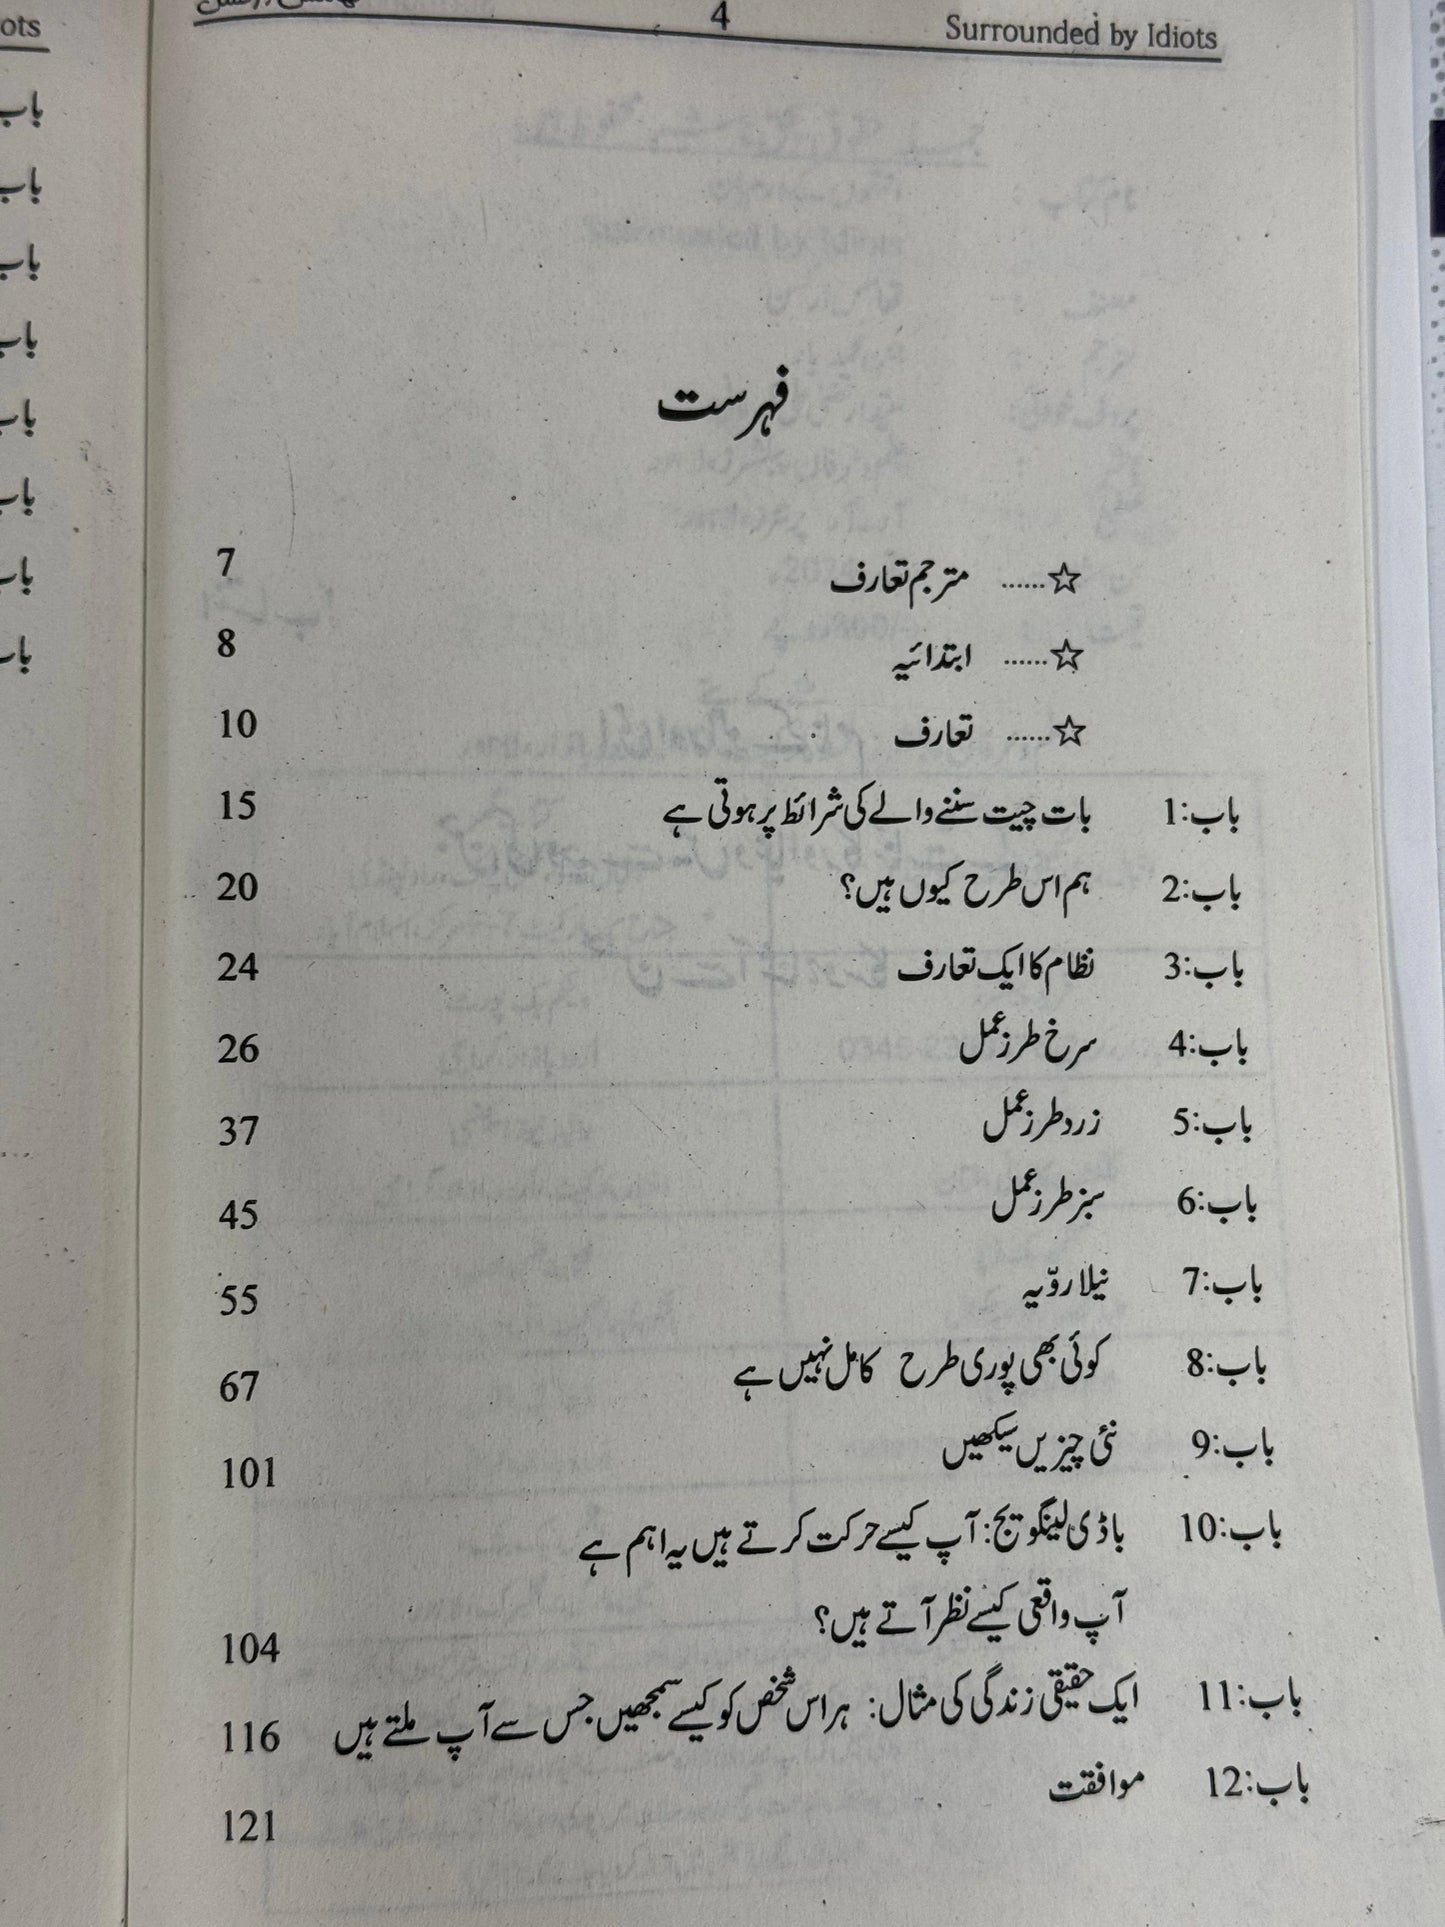 4
Surrounded by Idiots
فہرست
☆...... مترجم تعارف 7
☆...... ابتدائیہ 8
☆...... تعارف 10
باب:1 بات چیت سننے والے کی شرائط پر ہوتی ہے 15
باب:2 ہم اس طرح کیوں ہیں؟ 20
باب:3 نظام کا ایک تعارف 24
باب:4 سرخ طرز عمل 26
باب:5 زرد طرز عمل 37
باب:6 سبز طرز عمل 45
باب:7 نیلا روّیہ 55
باب:8 کوئی بھی پوری طرح کامل نہیں ہے 67
باب:9 نئی چیزیں سیکھیں 101
باب:10 باڈی لینگویج: آپ کیسے حرکت کرتے ہیں یہ اہم ہے
آپ واقعی کیسے نظر آتے ہیں؟ 104
باب:11 ایک حقیقی زندگی کی مثال: ہر اس شخص کو کیسے سمجھیں جس سے آپ ملتے ہیں 116
باب:12 موافقت 121
ots
باب
باب
باب
باب
باب
باب
باب
باب